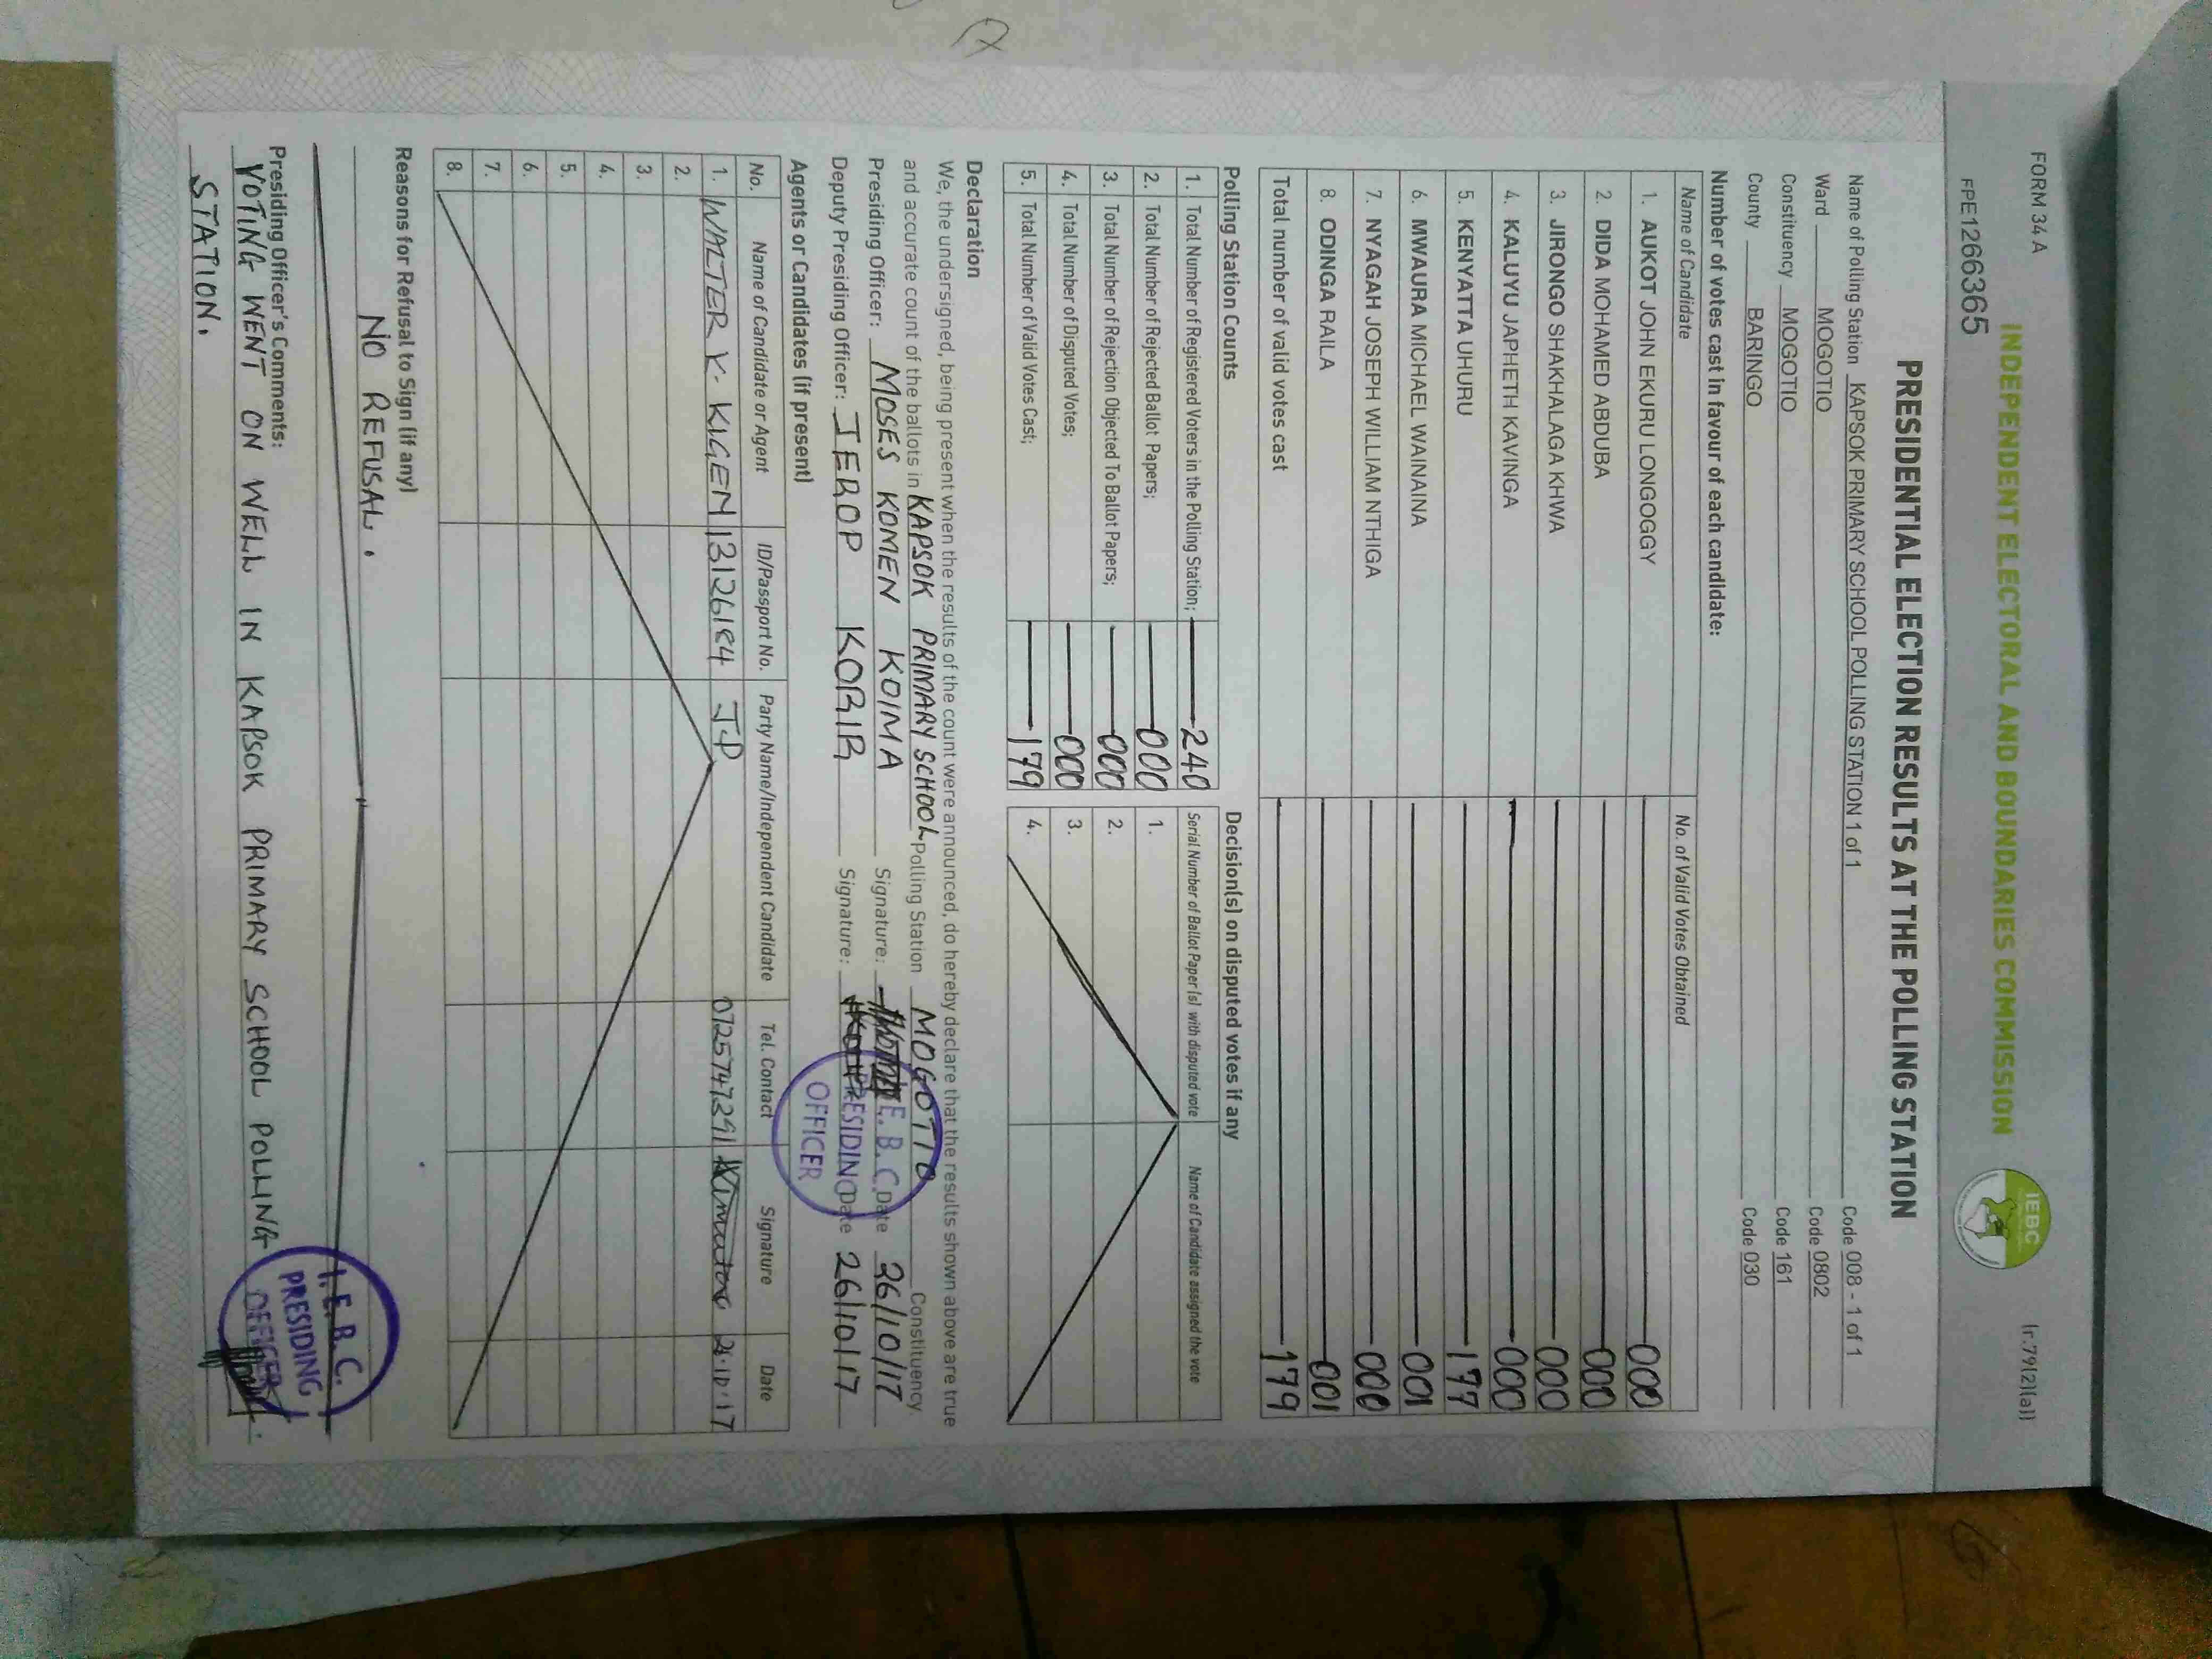 FORM 34 A
(r.79(2)(a))
INDEPENDENT ELECTORAL AND BOUNDARIES COMMISSION
IEBC
FPE1266365
PRESIDENTIAL ELECTION RESULTS AT THE POLLING STATION
Name of Polling Station KAPSOK PRIMARY SCHOOL POLLING STATION 1 of 1 Code 008 - 1 of 1
Ward MOGOTIO Code 0802
Constituency MOGOTIO Code 161
County BARINGO Code 030
Number of votes cast in favour of each candidate:
Name of Candidate No. of Valid Votes Obtained
1. AUKOT JOHN EKURU LONGOGGY 000
2. DIDA MOHAMED ABDUBA 000
3. JIRONGO SHAKHALAGA KHWA 000
4. KALUYU JAPHETH KAVINGA 000
5. KENYATTA UHURU 177
6. MWAURA MICHAEL WAINAINA 001
7. NYAGAH JOSEPH WILLIAM NTHIGA 000
8. ODINGA RAILA 001
Total number of valid votes cast 179
Polling Station Counts
1. Total Number of Registered Voters in the Polling Station; 240
2. Total Number of Rejected Ballot Papers; 000
3. Total Number of Rejection Objected To Ballot Papers; 000
4. Total Number of Disputed Votes; 000
5. Total Number of Valid Votes Cast; 179
Decision(s) on disputed votes if any
Serial Number of Ballot Paper (s) with disputed vote Name of Candidate assigned the vote
1.
2.
3.
4.
Declaration
We, the undersigned, being present when the results of the count were announced, do hereby declare that the results shown above are true
and accurate count of the ballots in KAPSOK PRIMARY SCHOOL Polling Station MOGOTIO Constituency.
Presiding Officer: MOSES KOMEN KOIMA Signature: Date 26/10/17
Deputy Presiding Officer: JEROP KORIR Signature: Date 26/10/17
I.E.B.C.
PRESIDING
OFFICER
Agents or Candidates (if present)
No. Name of Candidate or Agent ID/Passport No. Party Name/Independent Candidate Tel. Contact Signature Date
1. WALTER K. KIGEN 13126184 JP 0725747291
2.
3.
4.
5.
6.
7.
8.
Reasons for Refusal to Sign (if any)
NO REFUSAL.
Presiding Officer's Comments:
VOTING WENT ON WELL IN KAPSOK PRIMARY SCHOOL POLLING
STATION.
I.E.B.C.
PRESIDING
OFFICER